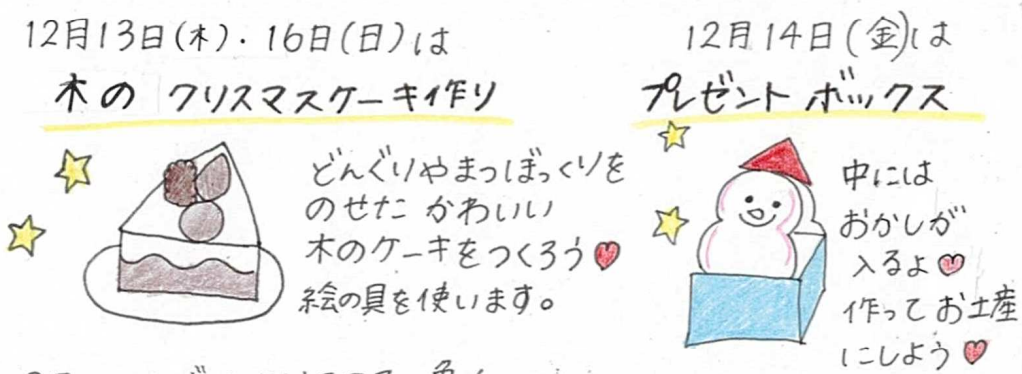 12月13日(木)・16日(日)は
木の クリスマスケーキ作り
どんぐりやまつぼっくりを
のせた かわいい
木のケーキをつくろう
絵の具を使います。
12月14日(金)は
プレゼント ボックス
中には
おかしが
入るよ
作って お土産
にしよう